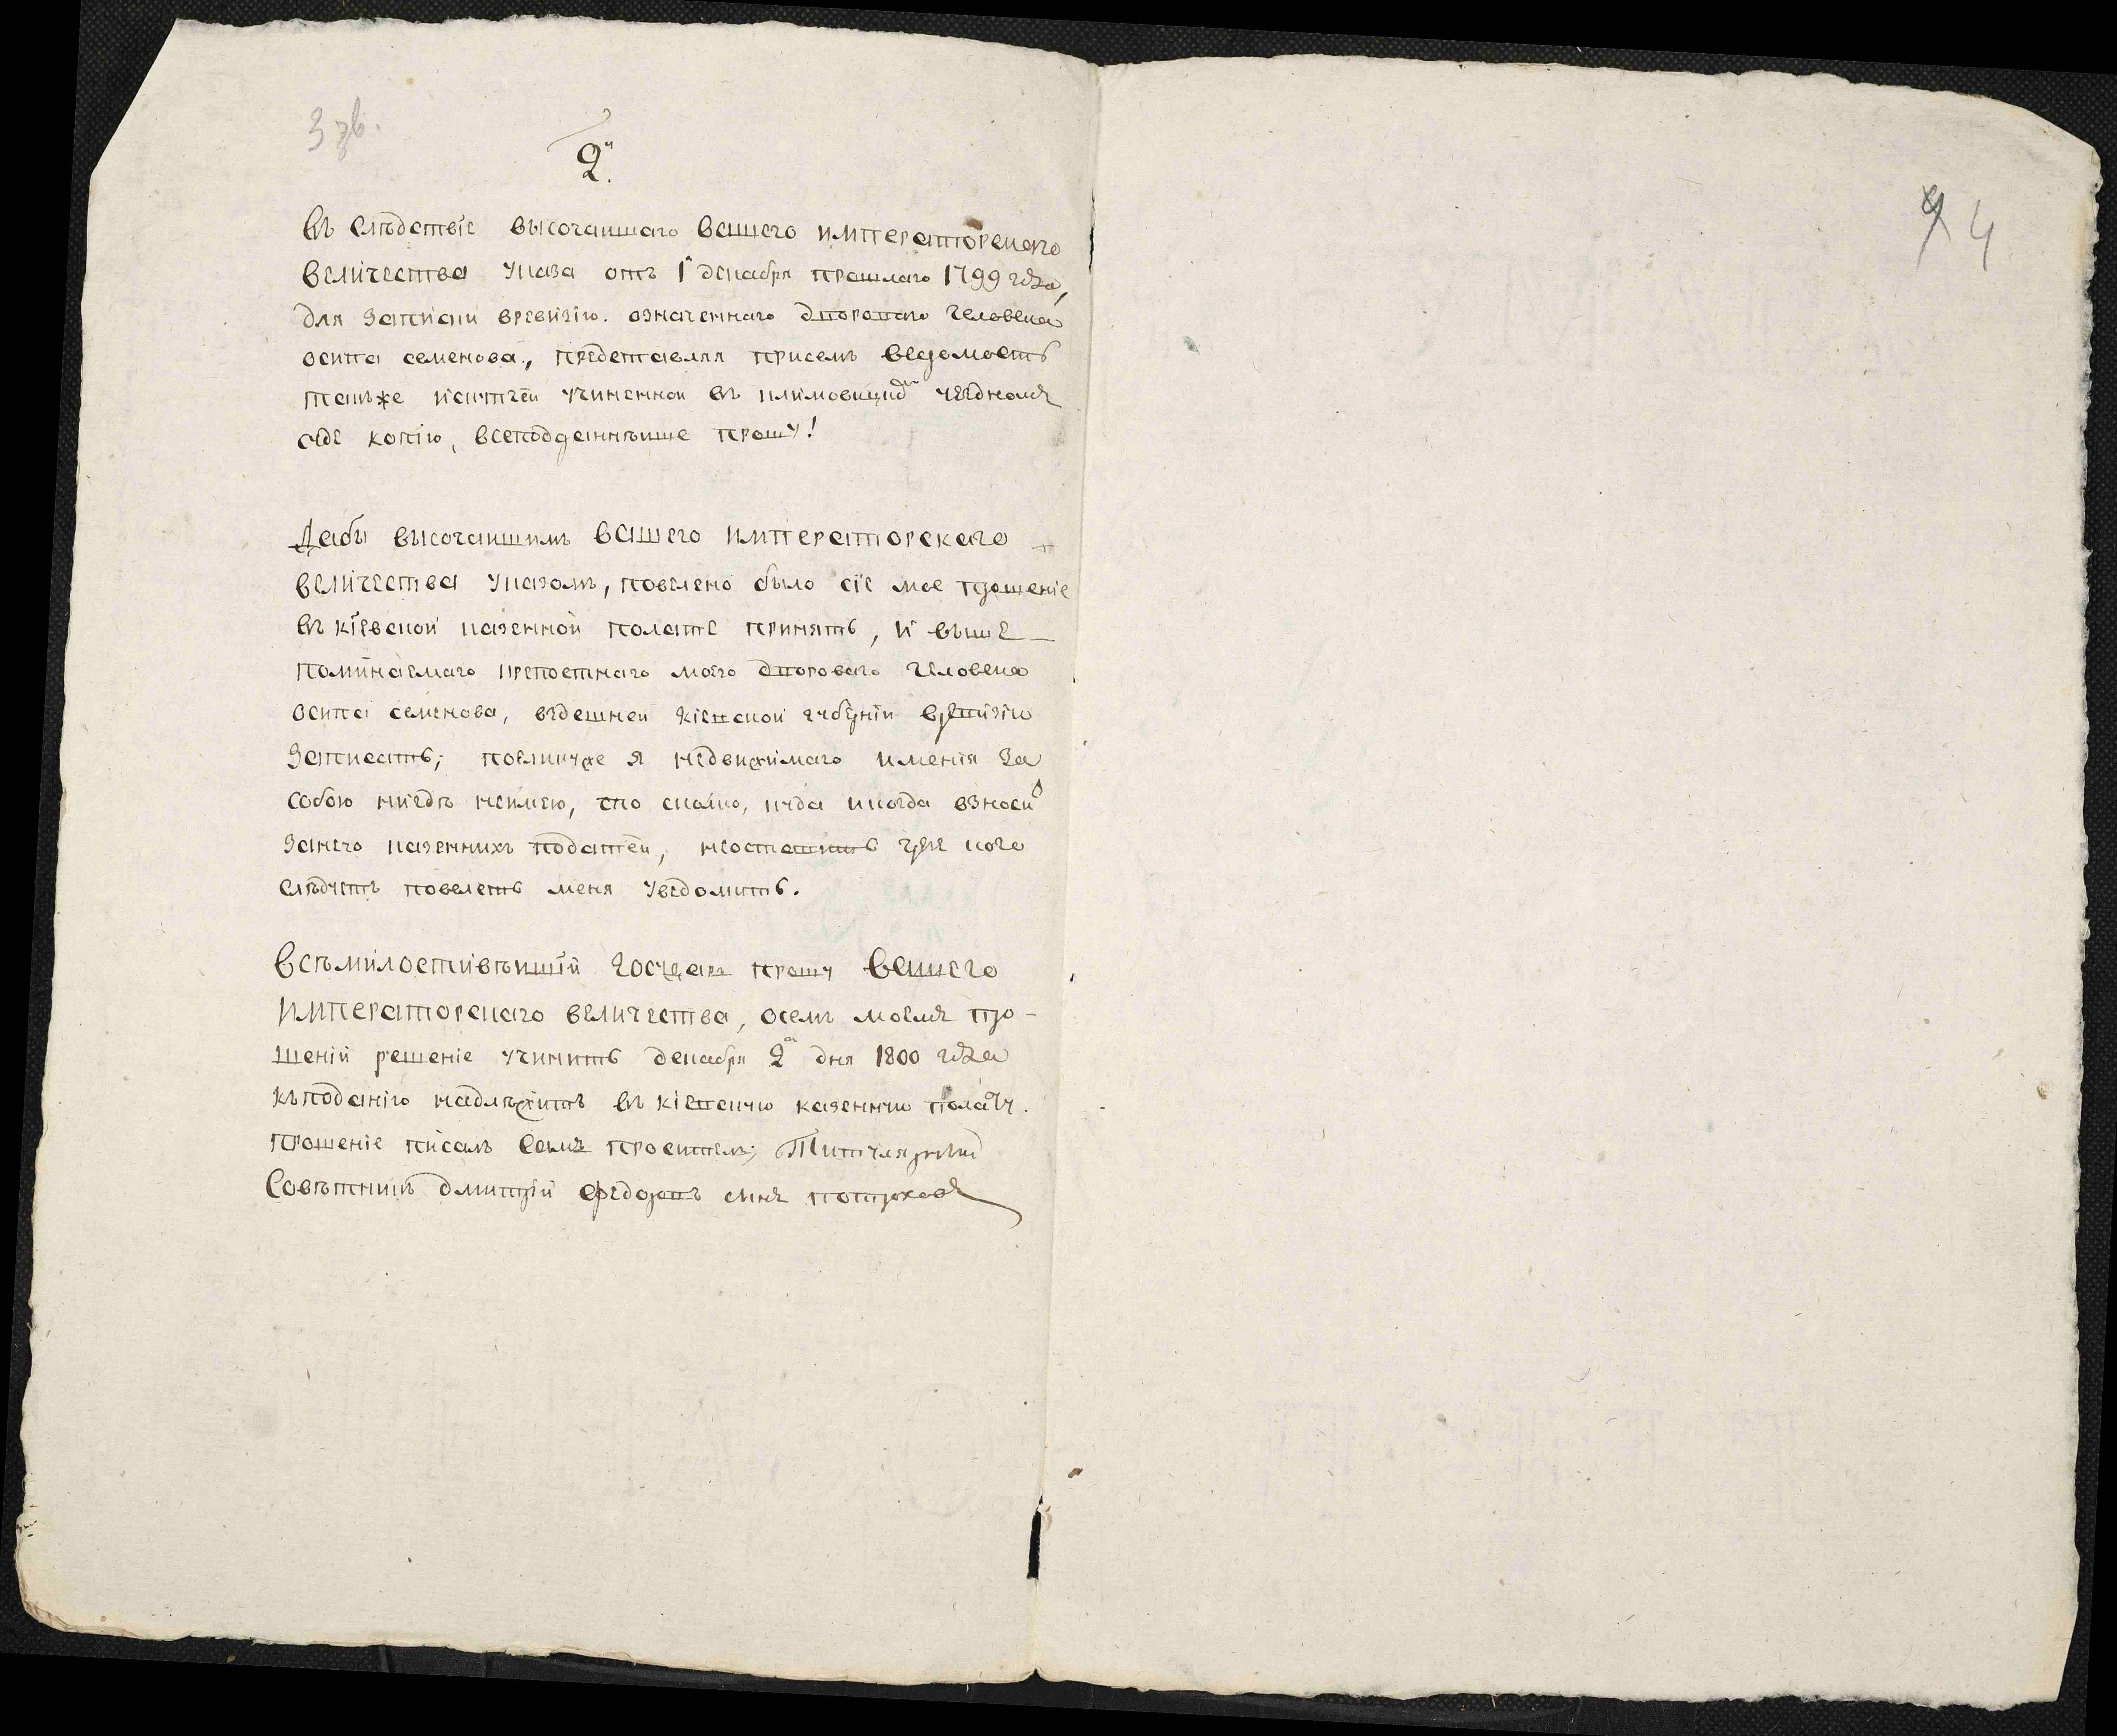 3 зв.
2й
въ следствіе высочаишаго вашего императорскаго
величества указа отъ 1 декабря прошлаго 1799 года,
для записки вревизію. означеннаго двороваго человека
осипа семенова, представляя присемъ ведомость
такъже учиненной въ уездномъ
суде копію, всеподданнѣише прошу!
Дабы высочаишимъ вашего императорскаго
величества указомъ, повелено было сіе мое прошеніе
въ кіевской казенной полате принять, и выше
поминаемаго крепостнаго моего двороваго человека
осипа семенова, вздешней кіевской губерніи вревизію
записать; поеликуже я недвижимаго именія за
собою нигдѣ неимею, то сколко, куда и когда взноси
занего казенныхъ податей, неоставить кого
слѣдуетъ повелеть меня уведомить.
Всѣмилостивѣишій государь прошу вашего
императорскаго величества, осемъ моемъ про-
шеніи решеніе учинить декабря 2 дня 1800 года
къ поданію надлѣжитъ въ кіевскую казенную полату.
прошеніе писалъ самъ проситель; Титулярный
Совѣтникъ дмитрій федоровъ сынъ
4 4